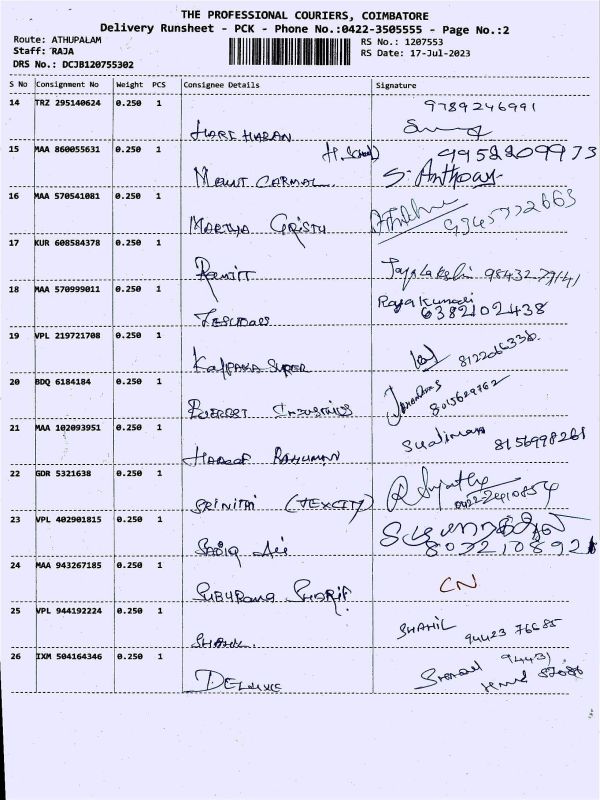 THE PROFESSIONAL COURIERS, COIMBATORE
Delivery Runsheet - PCK - Phone No.:0422-3505555 - Page No.:2
Route: ATHUPALAM
Staff: RAJA
RS No.: 1207553
RS Date: 17-Jul-2023
DRS No.: DCJB120755302
S No Consignment No Weight PCS Consignee Details Signature
14 TRZ 295140624 0.250 1 HARI HARAN 9789246991
15 MAA 860055631 0.250 1 MOUNT CARMAL H.School 9952209973
S. Anthony
16 MAA 570541081 0.250 1 MARTHA CRISTY 9345772663
17 KUR 608584378 0.250 1 RANJIT Jayalakshi 98432 79141
18 MAA 570999011 0.250 1 JESUDASS Raja Kumari
6382102438
19 VPL 219721708 0.250 1 KALPAKA SUPER
20 BDQ 6184184 0.250 1 EVEREST INDUSTRIES 8015629762
21 MAA 102093951 0.250 1 RAHUMAN Sulaiman 8156998261
22 GDR 5321638 0.250 1 SRINITHI (TEXCITY)
23 VPL 402901815 0.250 1 SADIQ ALI
24 MAA 943267185 0.250 1 SHARIF CN
25 VPL 944192224 0.250 1 SHAHIL SHAHIL 94423 76685
26 IXM 504164346 0.250 1 94431